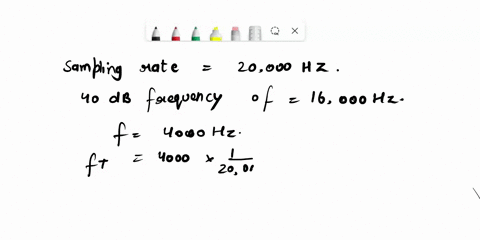 Sampling rate = 20,000 HZ.
40 dB frequency of = 16,000 Hz.
f = 4000 Hz.
f+ = 4000 × 1/20,00